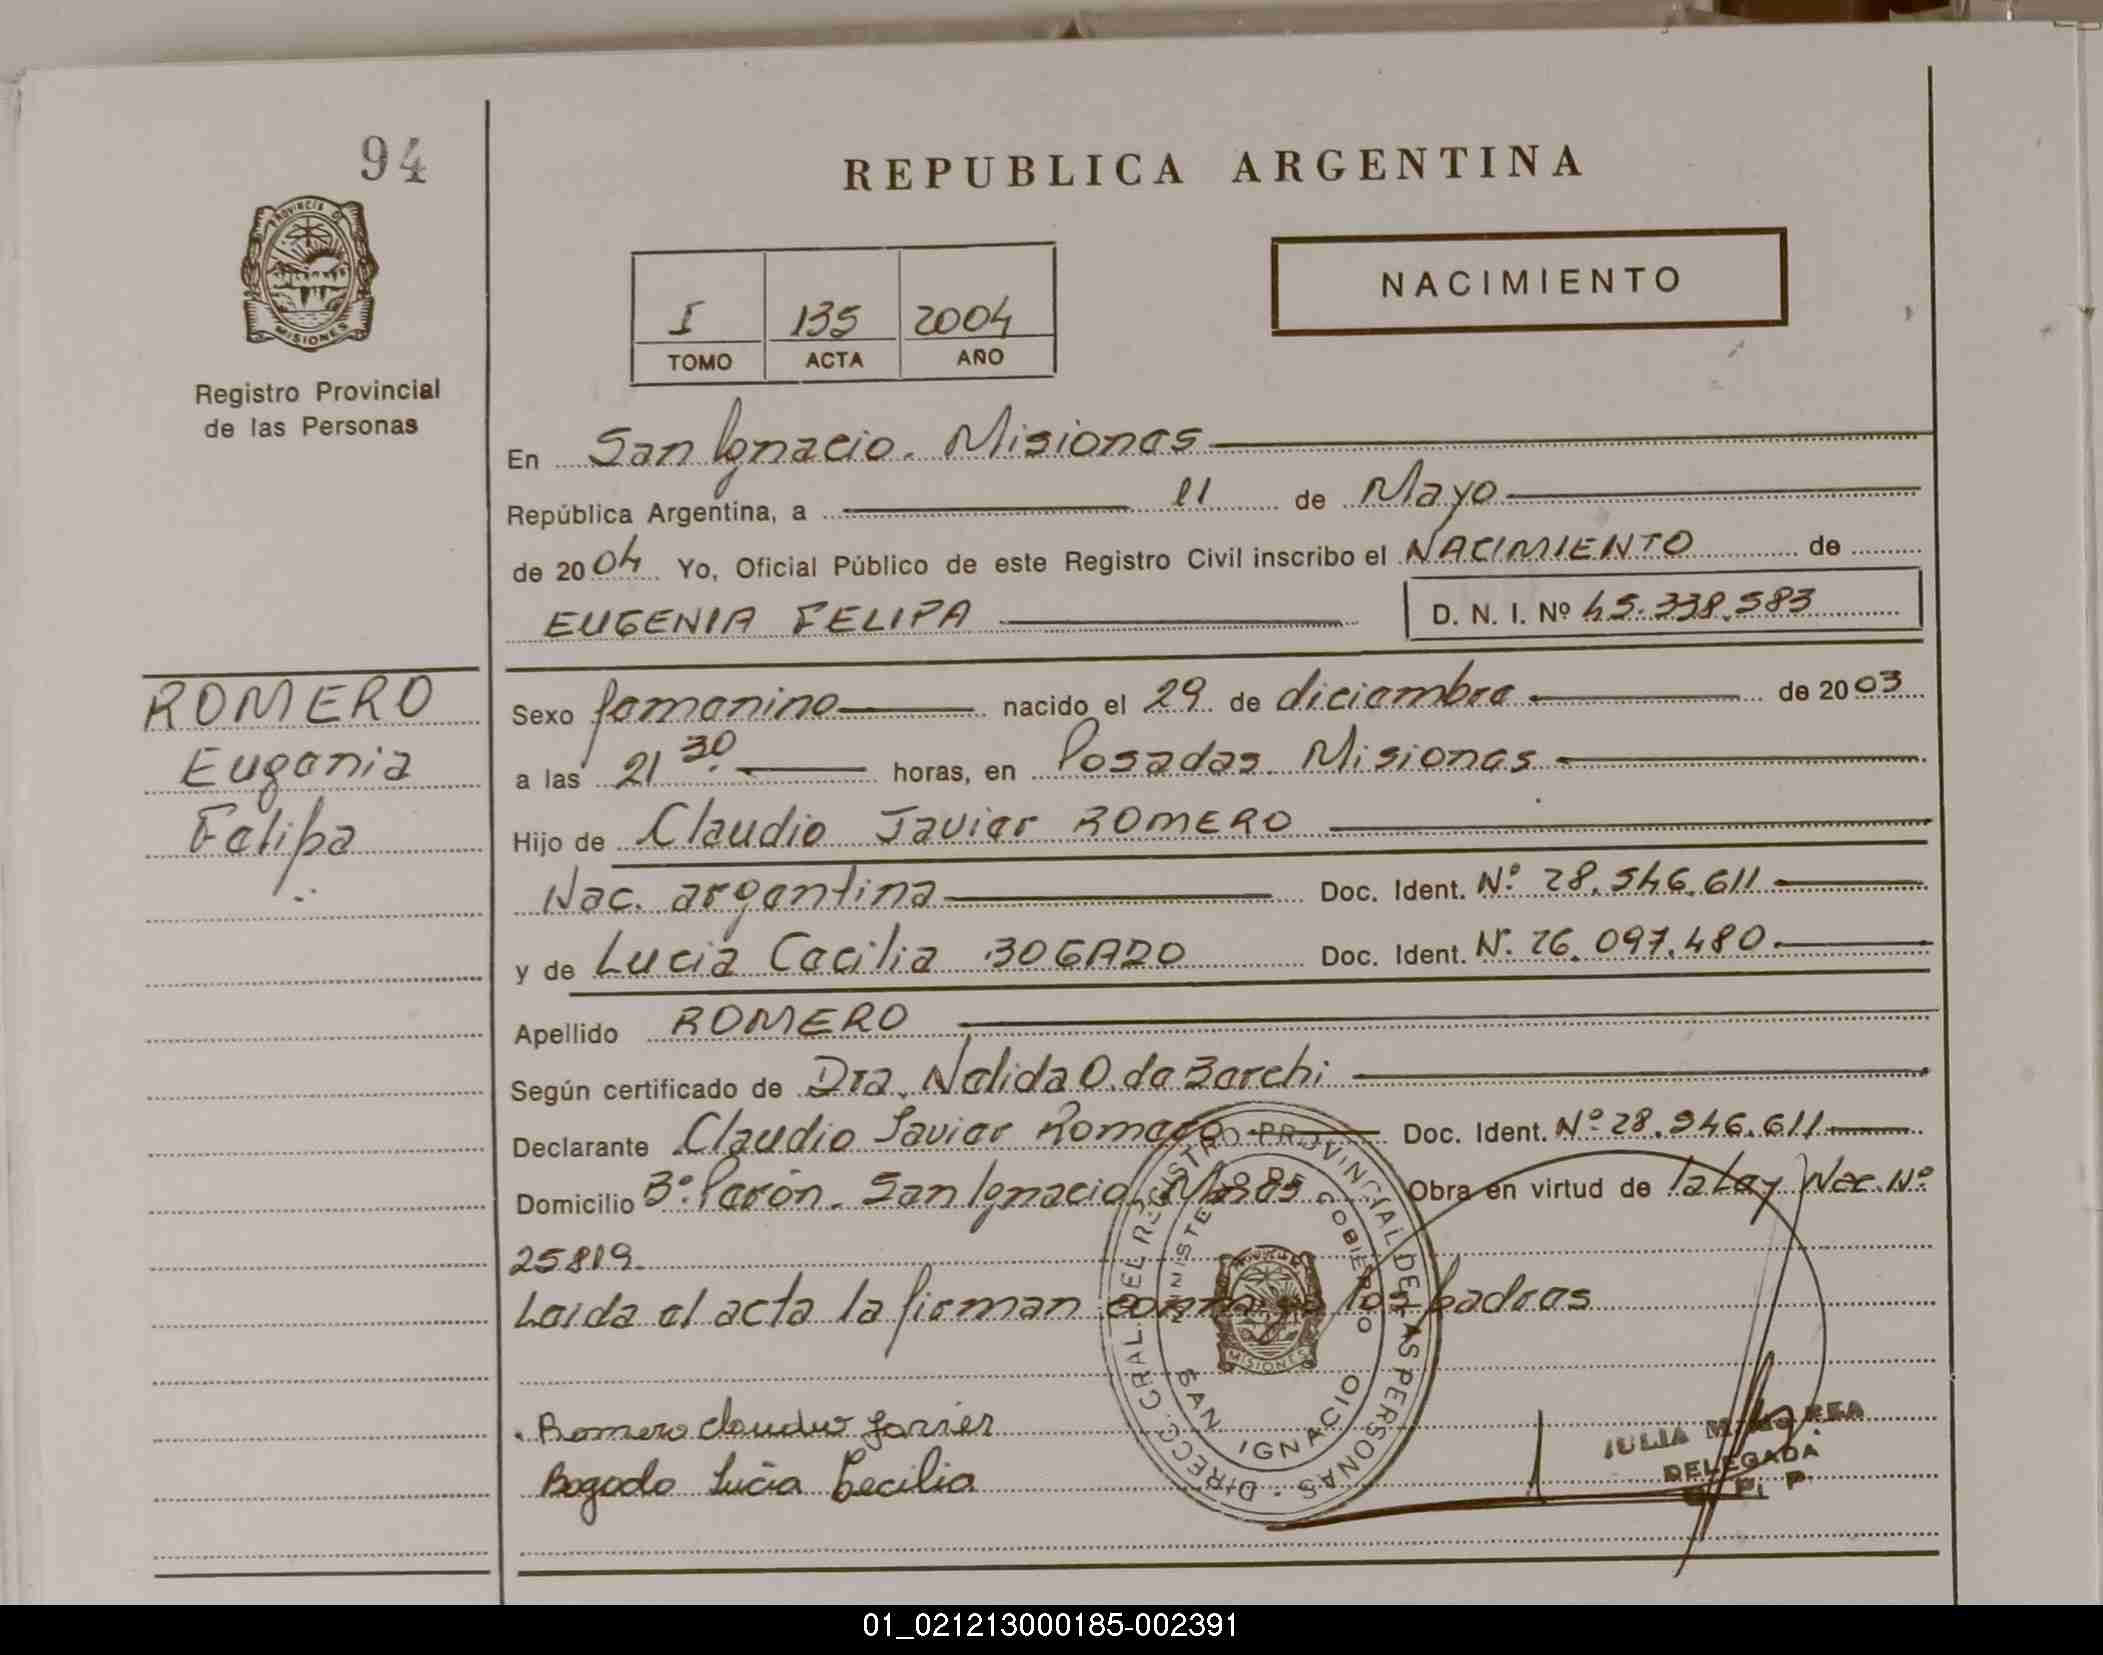 94
REPUBLICA ARGENTINA
PROVINCIA DE
MISIONES
NACIMIENTO
I 135 2004
TOMO ACTA AÑO
Registro Provincial
de las Personas
En San Ignacio. Misiones
República Argentina, a 11 de Mayo
de 2004 Yo, Oficial Público de este Registro Civil inscribo el NACIMIENTO de
EUGENIA FELIPA D. N. I. Nº 45.338.583
ROMERO
Eugenia
Felipa
Sexo femenino nacido el 29 de diciembre de 2003
a las 21 30 horas, en Posadas. Misiones
Hijo de Claudio Javier ROMERO
Nac. argentina Doc. Ident. Nº 28.546.611
y de Lucia Cecilia BOGADO Doc. Ident. Nº 26.097.480
Apellido ROMERO
Según certificado de Dra. Nelida O. de Berchi
Declarante Claudio Javier Romero Doc. Ident. Nº 28.546.611
Domicilio Bº Perón. San Ignacio Obra en virtud de la Ley Nac. Nº
25819.
Leída el acta la firman conmigo los padres
Romero Claudio Javier
Bogado Lucia Cecilia
DIRECC. GRAL. DEL REGISTRO PROVINCIAL DE LAS PERSONAS
MINISTERIO DE GOBIERNO
SAN IGNACIO
MISIONES
JULIA
DELEGADA
01_021213000185-002391